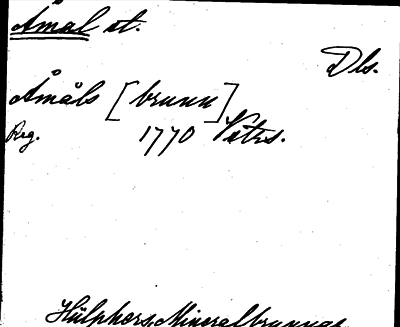 Åmål st.
Dls.
Åmåls [brunn]
Reg. 1770 Vätrs.
Hülphers, Mineralbrunnar